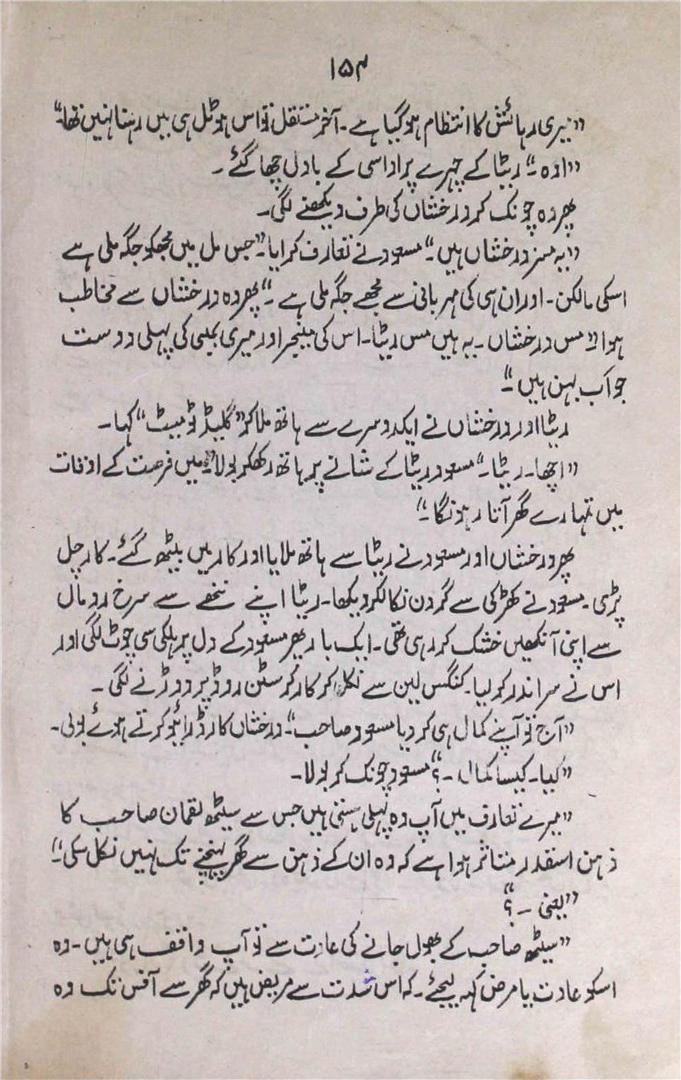 ۱۵۴
”میری رہائش کا انتظام ہو گیا ہے۔ آخر مستقل تو اس ہوٹل ہی میں رہنا نہیں تھا“
”اوہ۔“ ریٹا کے چہرے پر اداسی کے بادل چھا گئے۔
پھر وہ چونک کر درخشاں کی طرف دیکھنے لگی۔
”یہ مسز درخشاں ہیں۔“ مسعود نے تعارف کرایا۔ ”جس مل میں مجھکو جگہ ملی ہے
اسکی مالکن۔ اور ان ہی کی مہربانی سے مجھے جگہ ملی ہے۔“ پھر وہ درخشاں سے مخاطب
ہوا ”مس درخشاں۔ یہ ہیں مس ریٹا۔ اس کی مینجر اور میری بمبئی کی پہلی دوست
جو اب بہن ہیں۔“
ریٹا اور درخشاں نے ایکدوسرے سے ہاتھ ملا کر ”گلیڈ ٹو میٹ“ کہا۔
”اچھا۔ ریٹا۔“ مسعود ریٹا کے شانے پر ہاتھ رکھکر بولا ”میں فرصت کے اوقات
میں تمہارے گھر آتا رہونگا۔“
پھر درخشاں اور مسعود نے ریٹا سے ہاتھ ملایا اور کار میں بیٹھ گئے۔ کار چل
پڑی۔ مسعود نے کھڑکی سے گردن نکالکر دیکھا۔ ریٹا اپنے ننھے سے سرخ رومال
سے اپنی آنکھیں خشک کر رہی تھی۔ ایک بار پھر مسعود کے دل پر ہلکی سی چوٹ لگی اور
اس نے سر اندر کر لیا۔ کنگس لین سے نکل کر کار کرسٹن روڈ پر دوڑنے لگی۔
”آج تو آپنے کمال ہی کر دیا مسعود صاحب“۔ درخشاں کار ڈرائیو کرتے ہوئے بولی۔
”کیا۔ کیسا کمال۔؟“ مسعود چونک کر بولا۔
”میرے تعارف میں آپ وہ پہلی ہستی ہیں جس سے سیٹھ لقمان صاحب کا
ذہن اسقدر متاثر ہوا ہے کہ وہ ان کے ذہن سے گھر پہنچنے تک نہیں نکل سکی۔“
”یعنی۔؟“
”سیٹھ صاحب کے بھول جانے کی عادت سے تو آپ واقف ہی ہیں۔ وہ
اسکو عادت یا مرض کہہ لیجئے۔ کہ اس شدت سے مریض ہیں کہ گھر سے آفس تک وہ